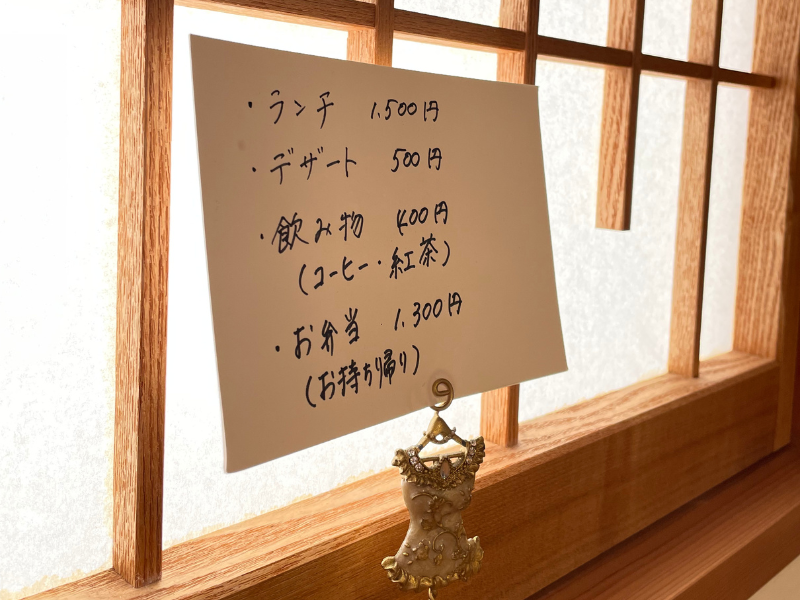 ・ランチ 1.500円
・デザート 500円
・飲み物 400円
(コーヒー・紅茶)
・お弁当 1.300円
(お持ち帰り)